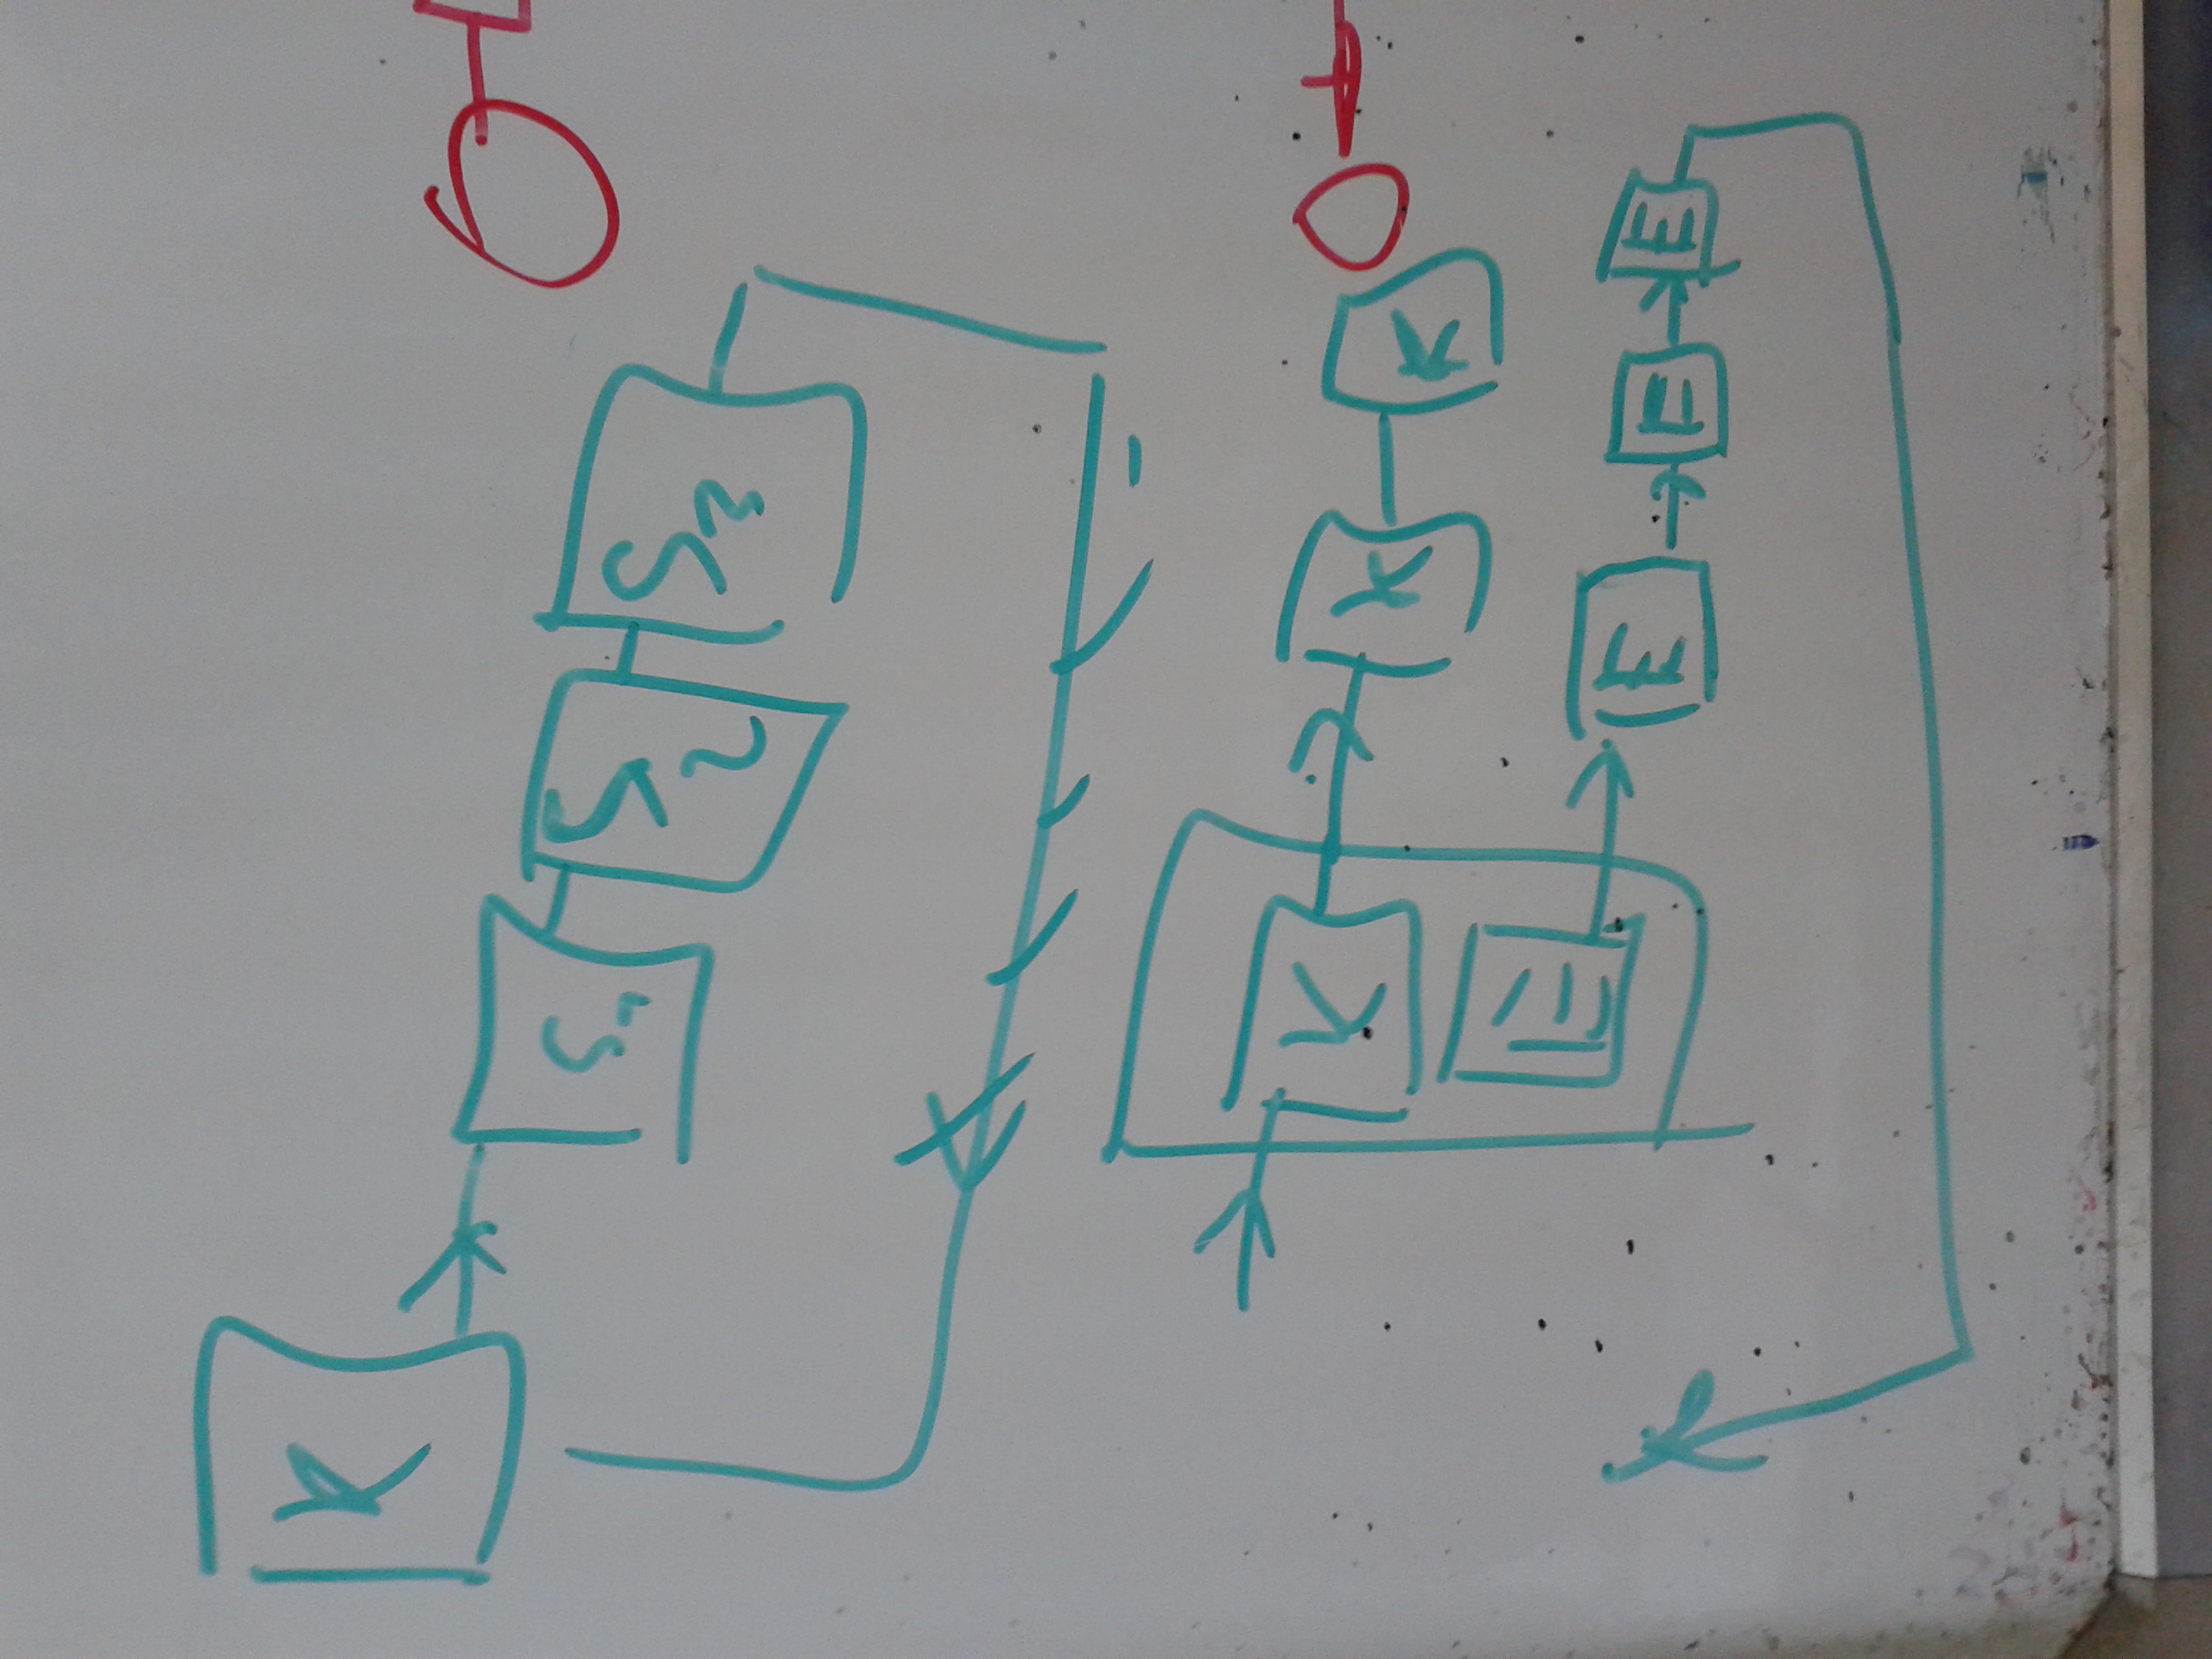 K
S1
S2
S3
K K K
E E E E